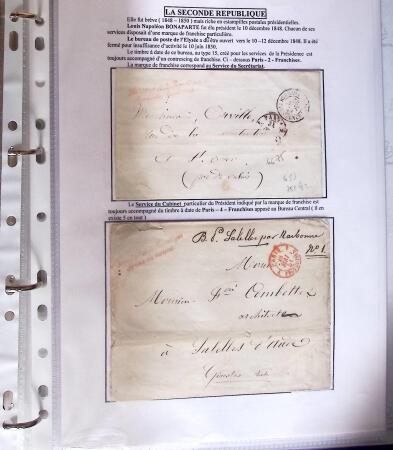 LA SECONDE REPUBLIQUE
Elle fut brève ( 1848 – 1850 ) mais riche en estampilles postales présidentielles.
Louis Napoléon BONAPARTE fut élu président le 10 décembre 1848. Chacun de ses
services disposait d'une marque de franchise particulière.
Le bureau de poste de l'Elysée a dû être ouvert vers le 10 –12 décembre 1848. Il a été
fermé pour insuffisance d'activité le 10 juin 1850.
Le timbre à date de ce bureau, au type 15, créé pour les services de la Présidence est
toujours accompagné d'un contreseing de franchise. Ci - dessous Paris - 2 - Franchises.
La marque de franchise correspond au Service du Secrétariat.
Monsieur
Le Service du Cabinet particulier du Président indiqué par la marque de franchise est
toujours accompagné du timbre à date de Paris – 4 – Franchises apposé au Bureau Central ( il en
existe 5 en tout )
B. P. Salelles par Narbonne
N° 1
Monsieur
Monsieur Combettes
architecte
à Salelles d'Aude